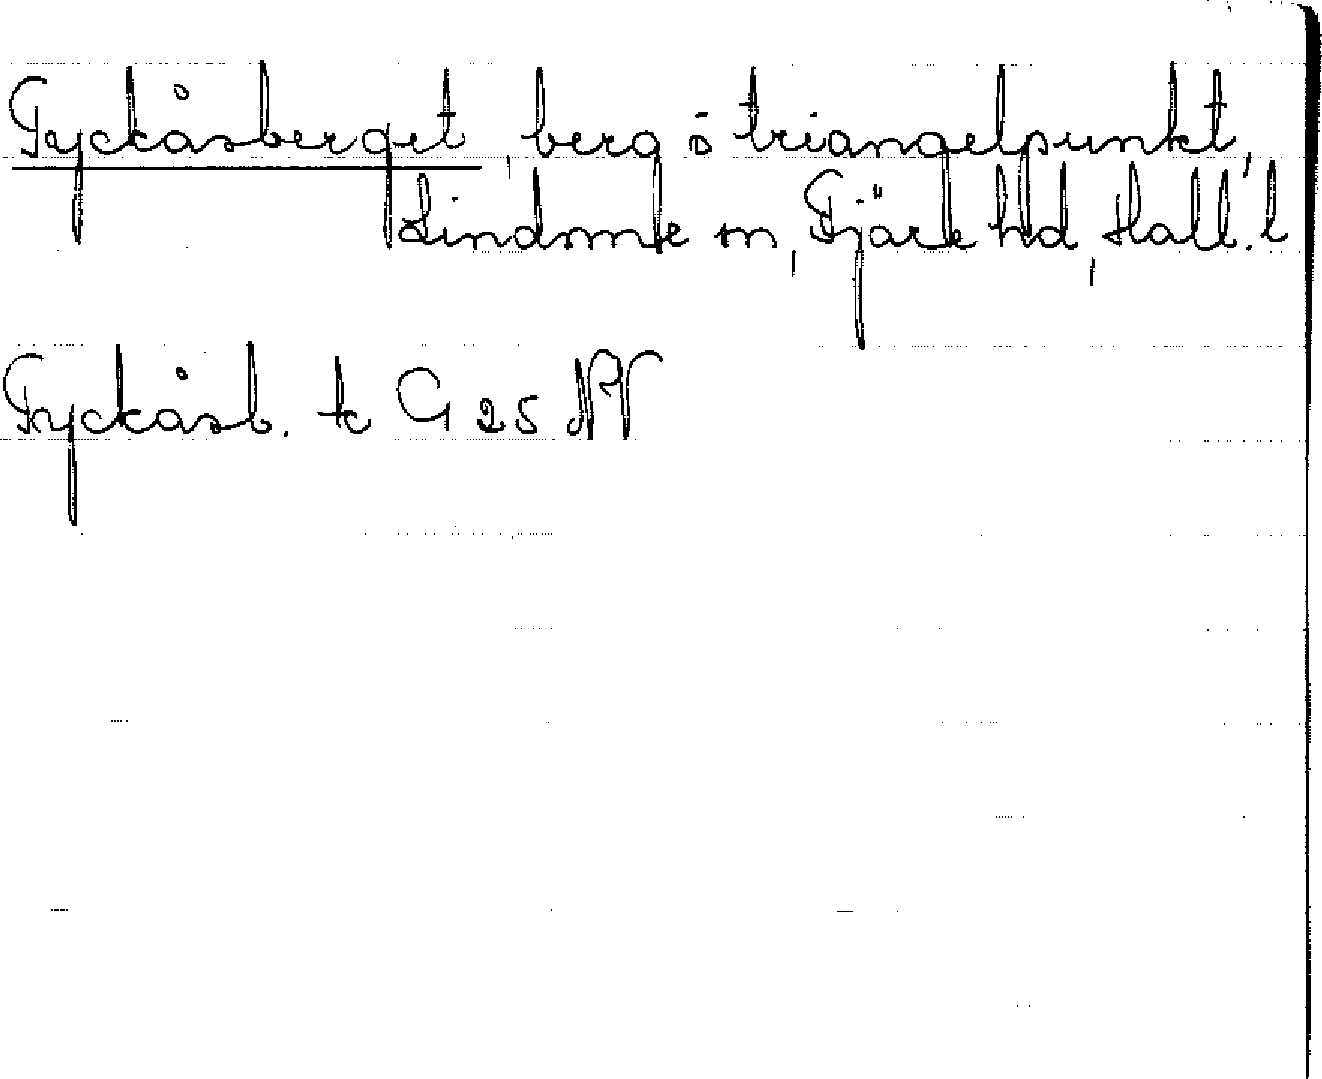 Tyckåsberget, berg ö triangelpunkt,
Lindome sn, Fjäre hd, Hall. l
Tyckåsb. tc G 25 NV